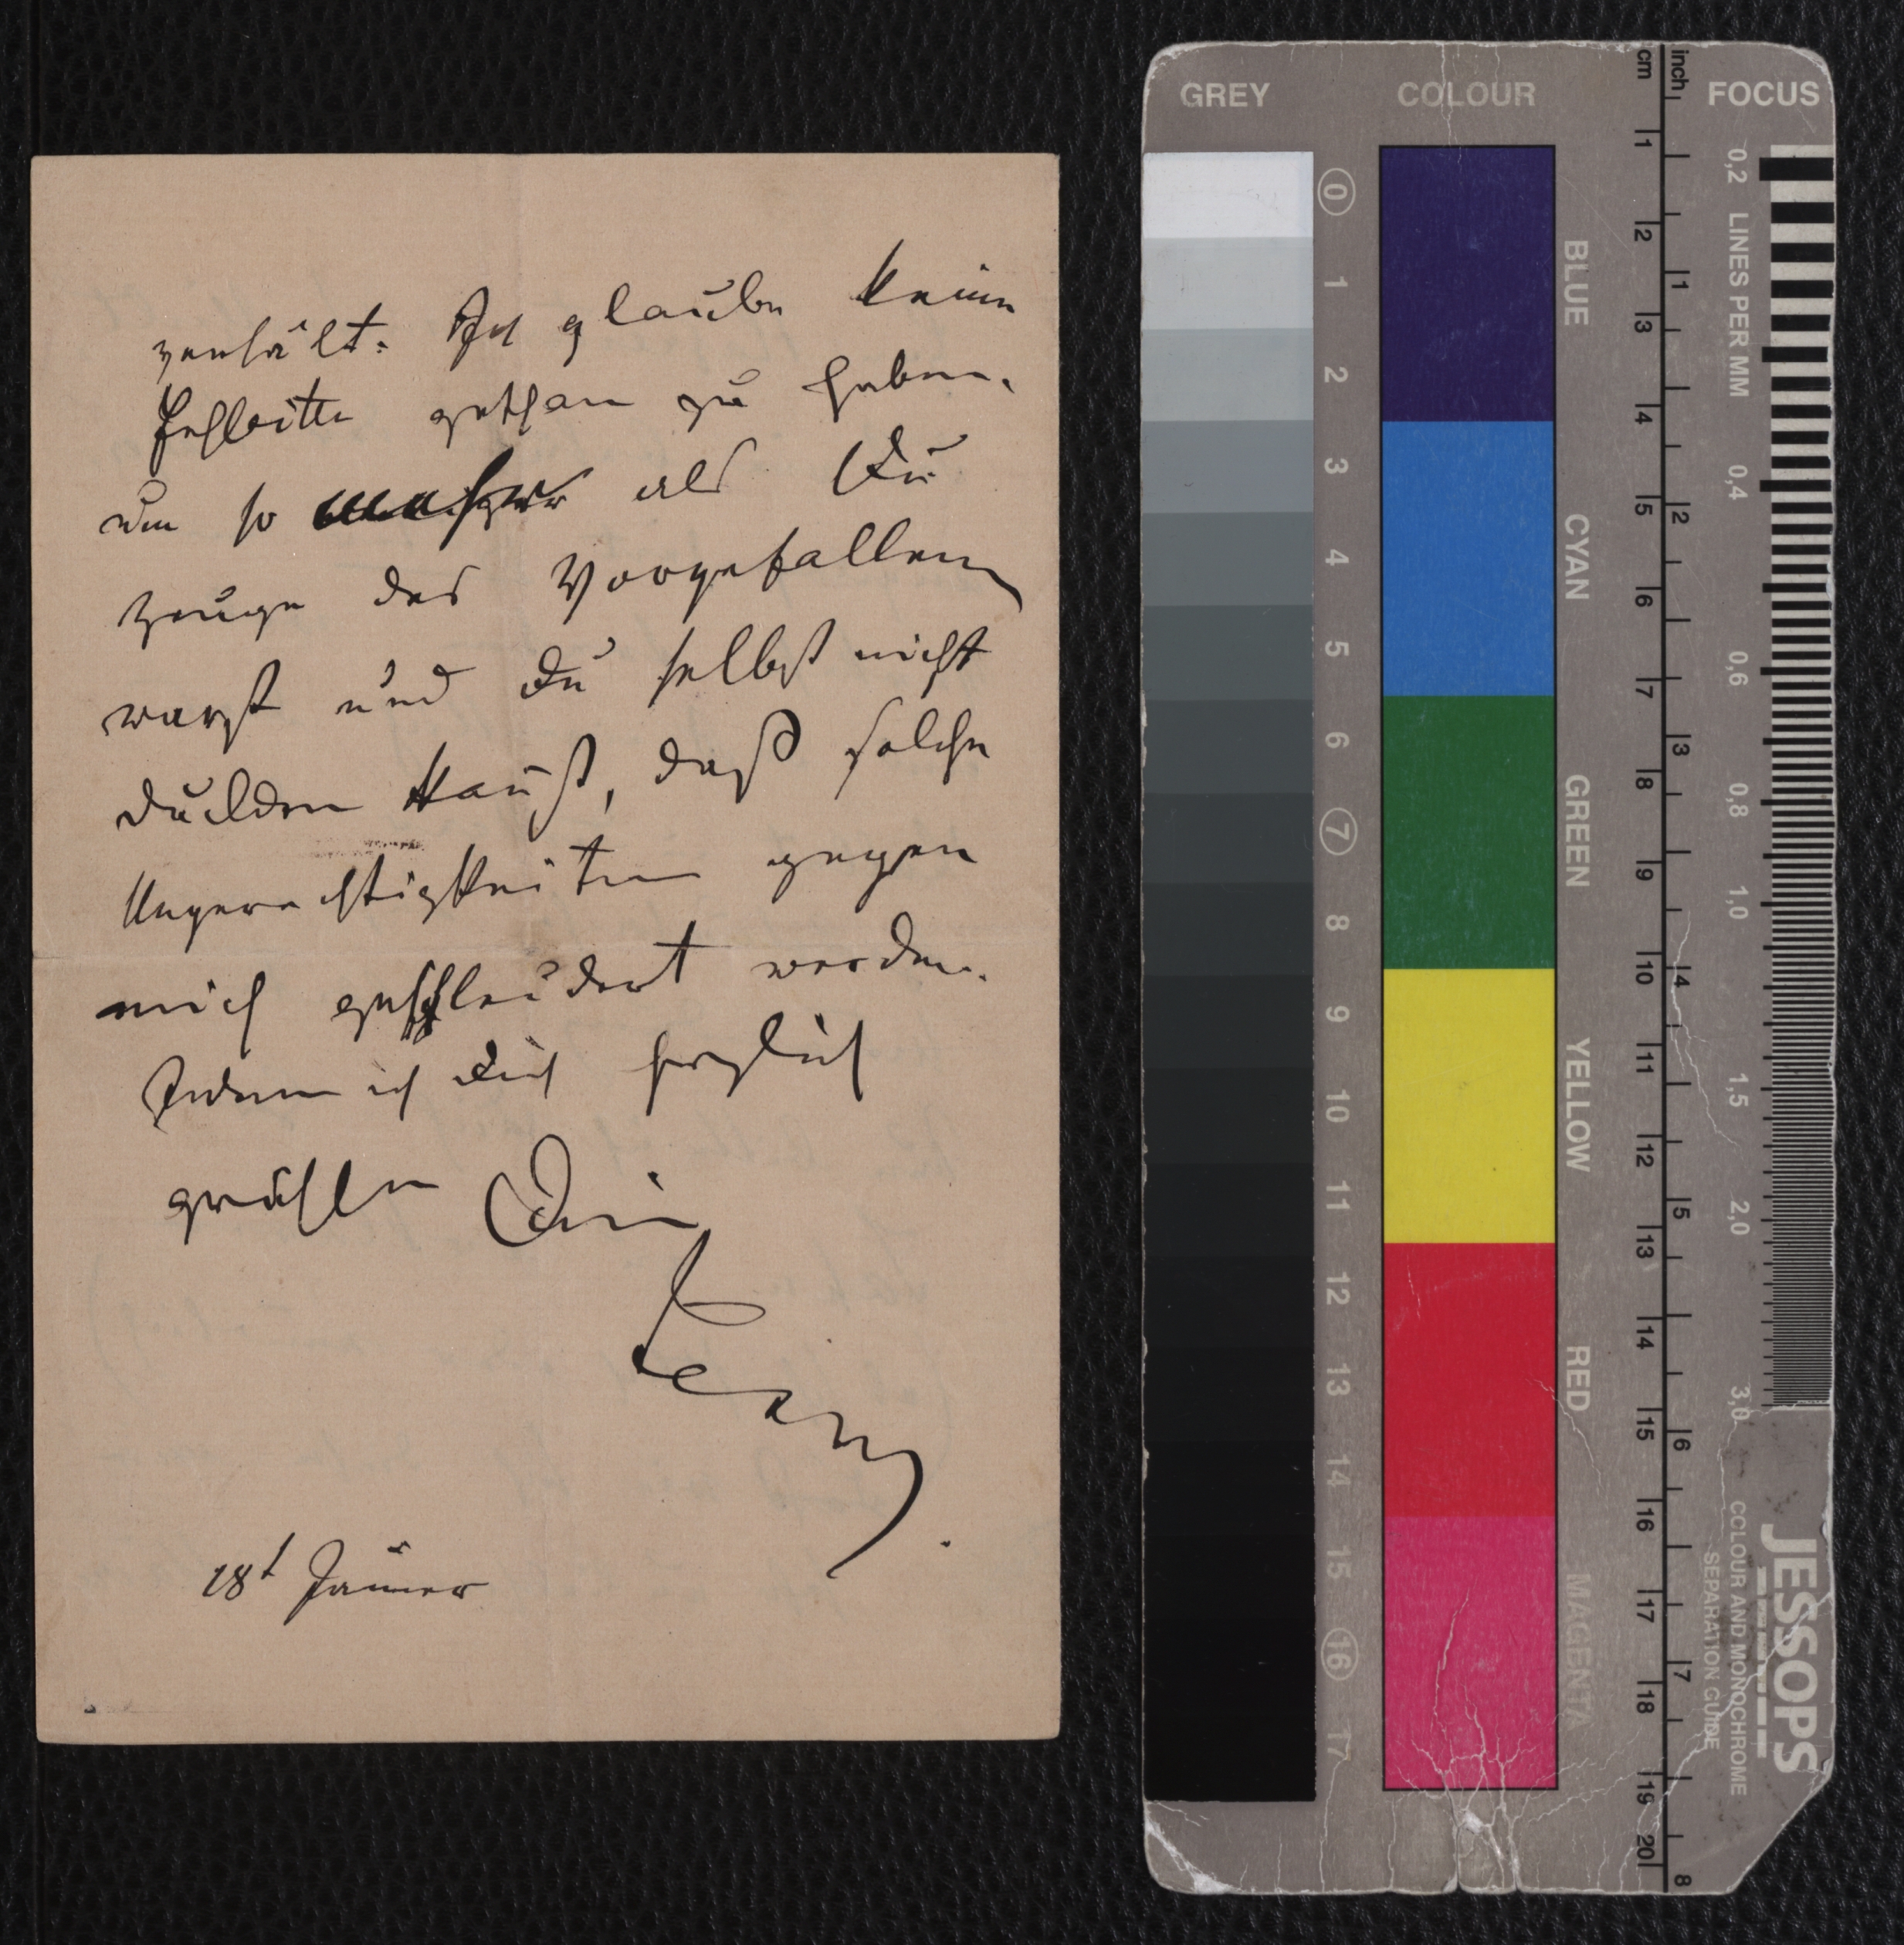 verhält. Ich glaube keine
Fehlbitte gethan zu haben.
um so mehr als Du
Zeuge des Vorgefallen
warst und Du selbst nicht
dulden kannst, daß solche
Ungerechtigkeiten gegen
mich geschleudert werden.
Indem ich Dich herzlich
grüße Dein
18t Jänner
GREY COLOUR FOCUS
cm inch
0 1 2 3 4 5 6 7 8 9 10 11 12 13 14 15 16 17
BLUE
CYAN
GREEN
YELLOW
RED
MAGENTA
1 2 3 4 5 6 7 8 9 10 11 12 13 14 15 16 17 18 19 20
1 2 3 4 5 6 7 8
0,2 LINES PER MM 0,4 0,6 0,8 1,0 1,5 2,0 3,0
JESSOPS
COLOUR AND MONOCHROME
SEPARATION GUIDE